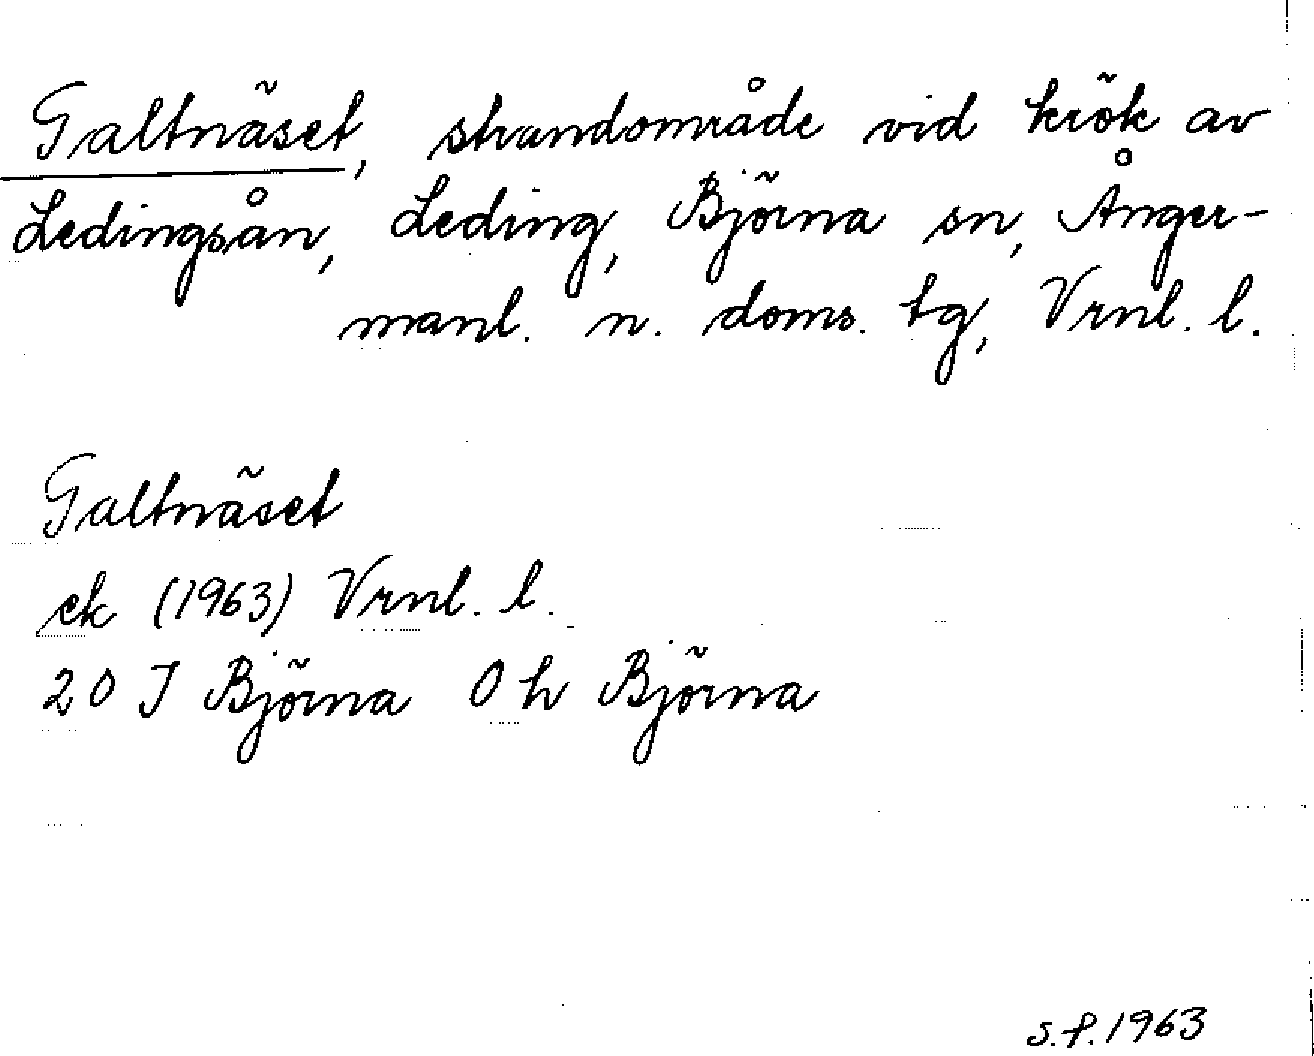 Galtnäset, strandområde vid krök av
Ledingsån, Leding, Björna sn, Ånger-
manl. n. doms. tg, Vrnl. l.
Galtnäset
ek (1963) Vrnl. l.
20 J Björna 0 h Björna
s.f. 1963